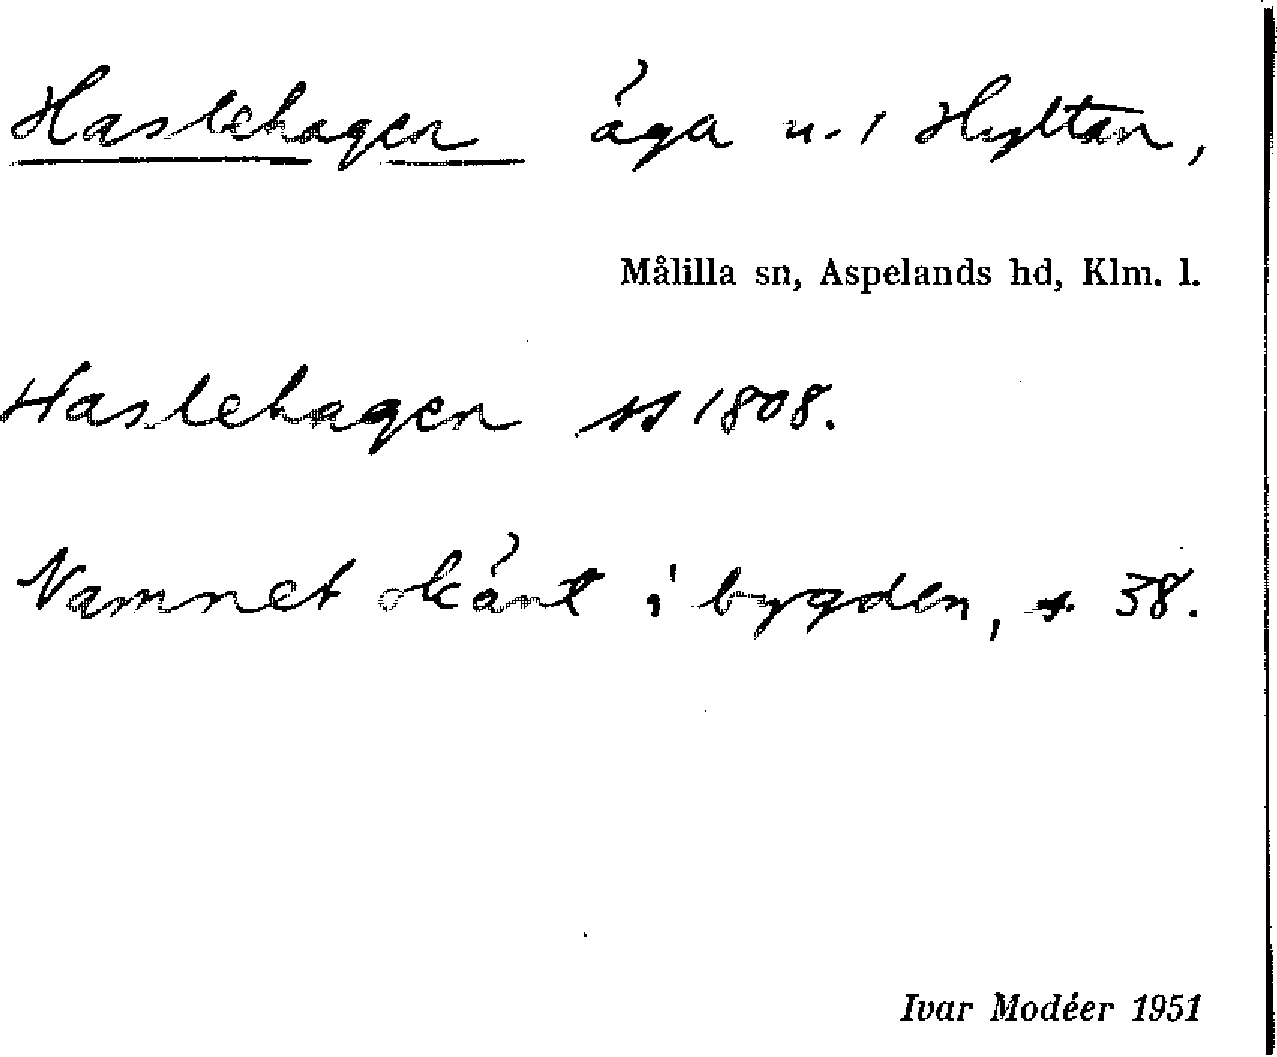 Haslehagen äga u. 1 Hyltan,
Målilla sn, Aspelands hd, Klm. l.
Haslehagen ss 1808.
Namnet okänt i bygden, s. 38.
Ivar Modéer 1951